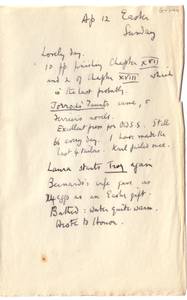 Ap 12 Easter
Sunday
Lovely day.
10 pp finishing Chapter XVII
and 2 of Chapter XVIII which
is the last probably.
came, 2
novels.
Excellent press for O.S.S. Still
66 every day. I have made the
last 4 failure. Karl failed once.
Laura starts Troy again
Bernardo's wife gave us
24 eggs as an Easter gift.
Bathed: water quite warm.
Wrote to Honor.